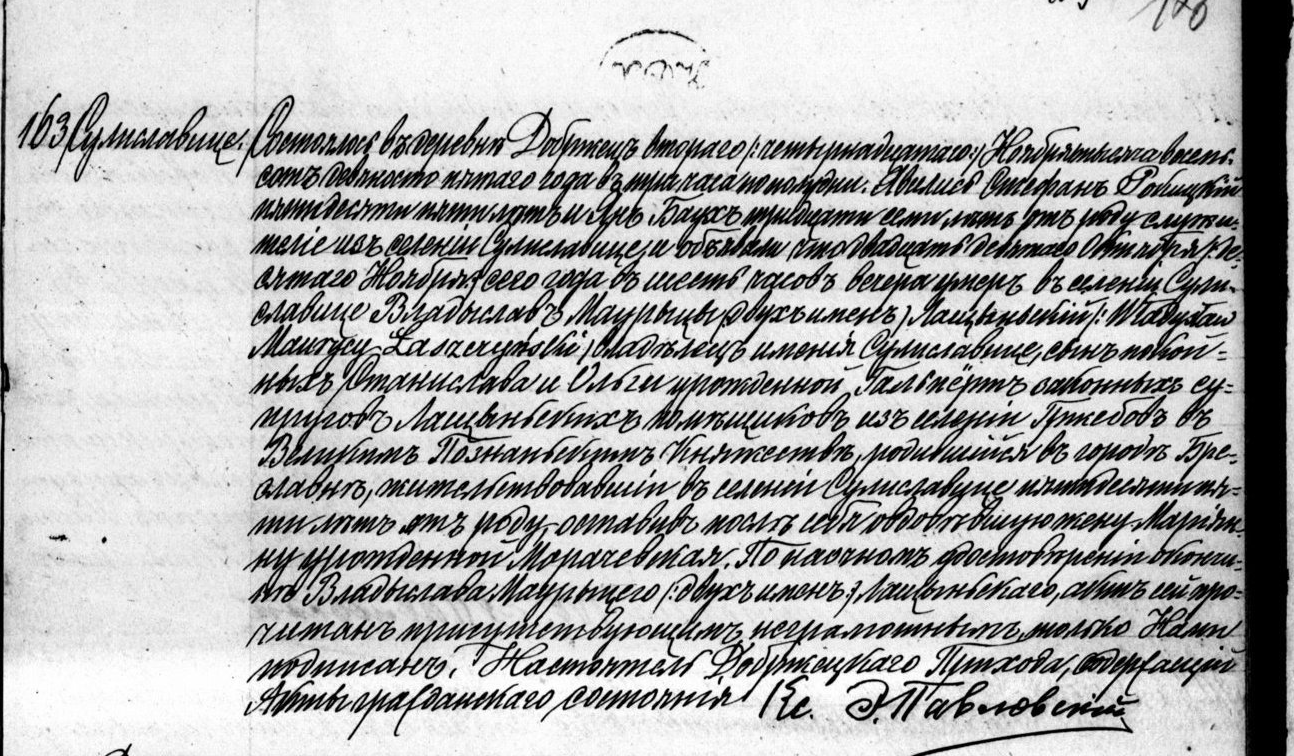 163 Сулиславице. Состоялось въ деревни Добржецъ втораго /:четырнадцатаго:/ Ноября тысяча восемь-
сотъ девяносто пятаго года въ три часа пополудни. Явились Стефанъ Робицкій
пятидесяти пяти лѣтъ и Янъ Баухъ тридцати семи лѣтъ отъ роду служи-
теліе изъ селеніи Сулиславице, и объявили что двадцать девятаго Октября /:де-
сятаго Ноября:/ сего года въ шесть часовъ вечера умеръ въ селеніи Сули-
славице Владыславъ Маурыцы /двухъ именъ/ Лащыньскій /: Władysław
Maurycy Laszczyński:/ владѣлецъ имения Сулиславице, сынъ покой-
ныхъ Станислава и Ольги урожденной Гальпертъ законныхъ су-
пруговъ Лащыньскихъ помѣщиковъ изъ селеніи Гржебовъ въ
Великимъ Познаньскимъ Княжествѣ, родившійся въ городѣ Бре-
славлѣ, жительствовавшій въ селеніи Сулиславице пятидесяти пя-
ти лѣтъ отъ роду, оставивъ послѣ себя овдовѣвшую жену Маріян-
ну урожденной Морачевская. По наочномъ удостовѣреніи о кончи-
нѣ Владыслава Маурыцего /:двухъ именъ:/ Лащыньскаго, актъ сей про-
читанъ присутствующимъ неграмотнымъ, только Нами
подписанъ. Настоятель Добржецкаго Прихода, содержащій
Акты гражданскаго состоянія Кс. Э. Павловскій